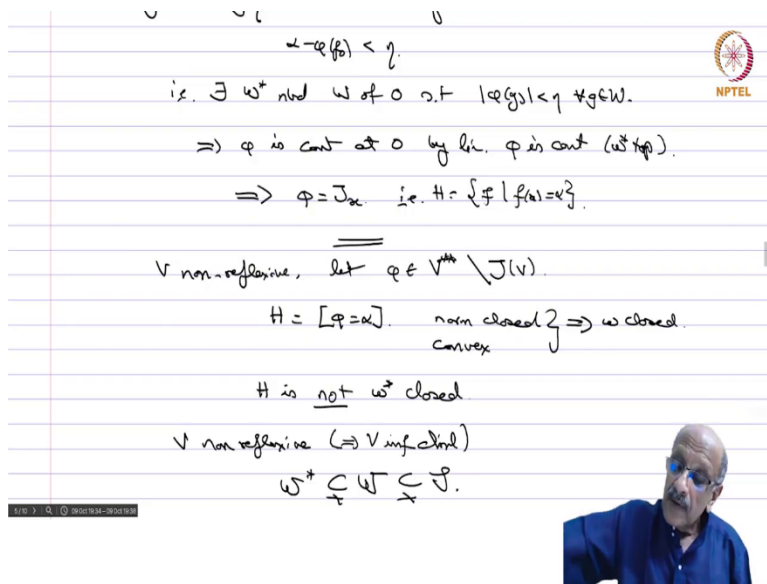 α-φ(f₀) < η.
NPTEL
i.e. ∃ w* nbd W of 0 s.t |φ(g)|<η ∀g∈W.
⇒ φ is cont at 0 by lin. φ is cont (w* top).
⇒ φ=Jₓ. i.e. H = {f | f(x)=α}.
V non-reflexive, let φ∈ V** \ J(V).
H = [φ=α]. norm closed } ⇒ w closed.
convex
H is not w* closed
V non reflexive (⇒ V inf diml)
w* ⊊ w ⊊ S.
5/10
09 Oct 19:34 - 09 Oct 19:38